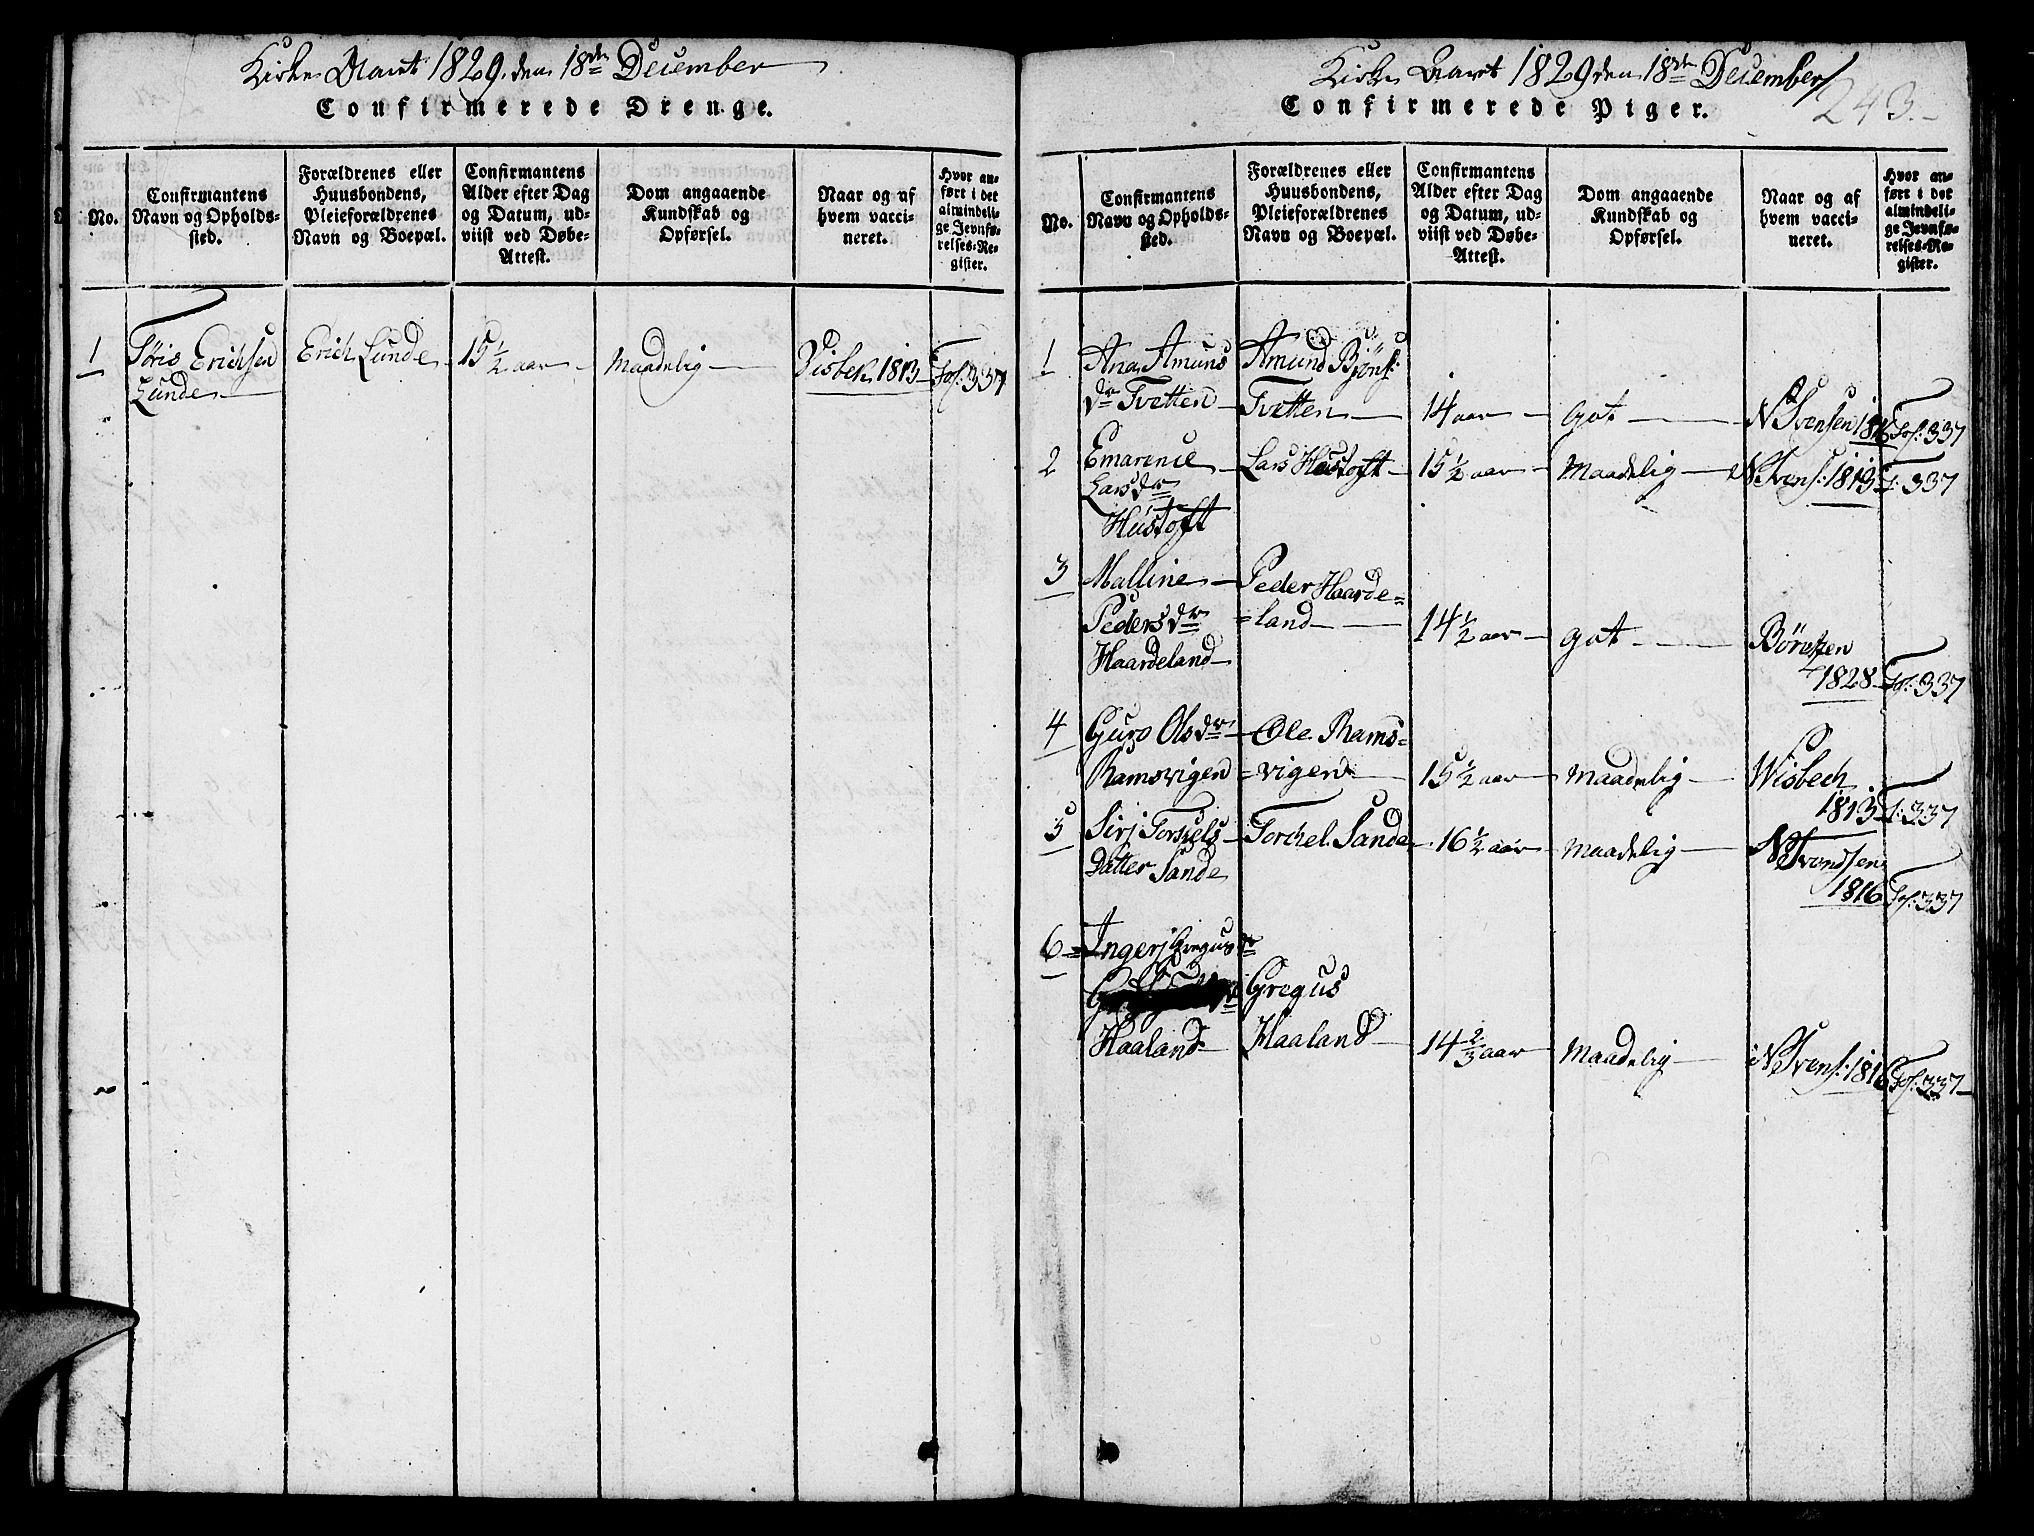 Kirke Aaret 1829. den 18de December
Confirmerede Drenge.
No.
Confirmantens
Navn og Opholds-
sted.
Forældrenes eller
Huusbondens,
Pleieforældrenes
Navn og Boepæl.
Confirmantens
Alder efter Dag
og Datum, ud-
viist ved Døbe-
Attest.
Dom angaaende
Kundskab og
Opførsel.
Naar og af
hvem vacci-
neret.
Hvor an-
ført i det
almindeli-
ge Jevnfø-
relses-Re-
gister.
1
Töris Erichsen
Lunde
Erich Lunde
15 1/2 aar
Maadelig
Visbek 1813
Fol: 337
Kirke Aaret 1829 den 18de December
243.
Confirmerede Piger.
No.
Confirmantens
Navn og Opholds-
sted.
Forældrenes eller
Huusbondens,
Pleieforældrenes
Navn og Boepæl.
Confirmantens
Alder efter Dag
og Datum, ud-
viist ved Døbe-
Attest.
Dom angaaende
Kundskab og
Opførsel.
Naar og af
hvem vacci-
neret.
Hvor an-
ført i det
almindeli-
ge Jevnfø-
relses-Re-
gister.
1
Ana Amuns
dr Tvetten
Amund Bjöns:
Tvetten
14 aar
got
N Svensen
Fol: 337
2
Emarencie
Larsdr
Hustoft
Lars Hustoft
15 1/2 aar
Maadelig
N Svens: 1813
F: 337
3
Malline
Pedersdr
Haardeland
Peder Haarde=
=land
14 1/2 aar
got
1828
Fol: 337
4
Guro Olsdr
Ramsvigen
Ole Rams=
=vigen
15 1/2 aar
Maadelig
Wisbech
1813
F: 337
5
Sirj Torkels
Datter Sande
Torchel Sande
16 1/2 aar
Maadelig
N Svendsen
1816
Fol: 337
6
Ingerj Gregusdr
Haaland
Gregus
Haaland
14 2/3 aar
Maadelig
N Svens: 1816
Fol: 337